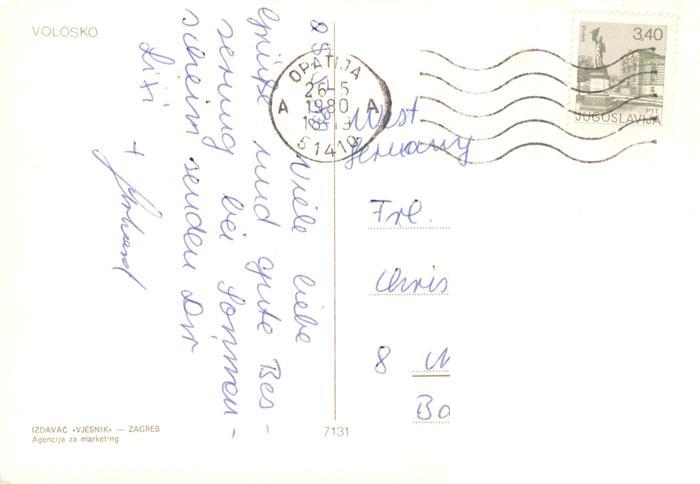 VOLOSKO
Viele liebe
Grüße und gute Bes-
serung bei Sonnen-
schein senden Dir
Lisi
+
OPATIJA
26-5
1980
A A
51410
3,40
PTT
JUGOSLAVIJA
West
Germany
Frl.
Chris
8
Ba
IZDAVAČ «VJESNIK» — ZAGREB
Agencija za marketing
7131